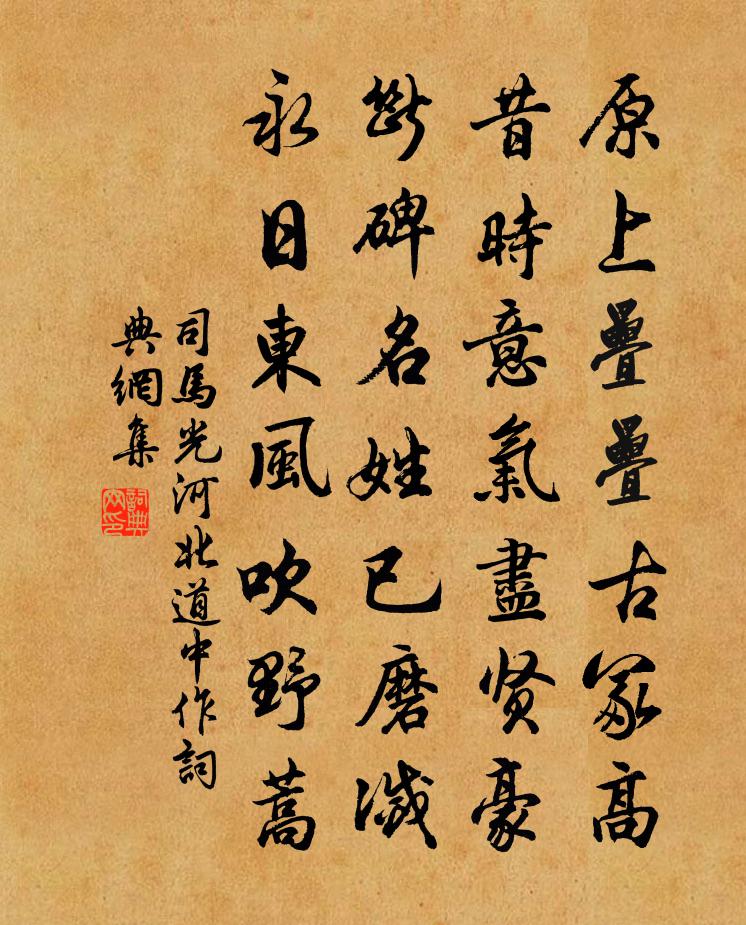 原上疊疊古冢高
昔時意氣盡贤豪
斷碑名姓已磨滅
永日東風吹野蒿
司馬光河北道中作詞
典網集
詞典
网印